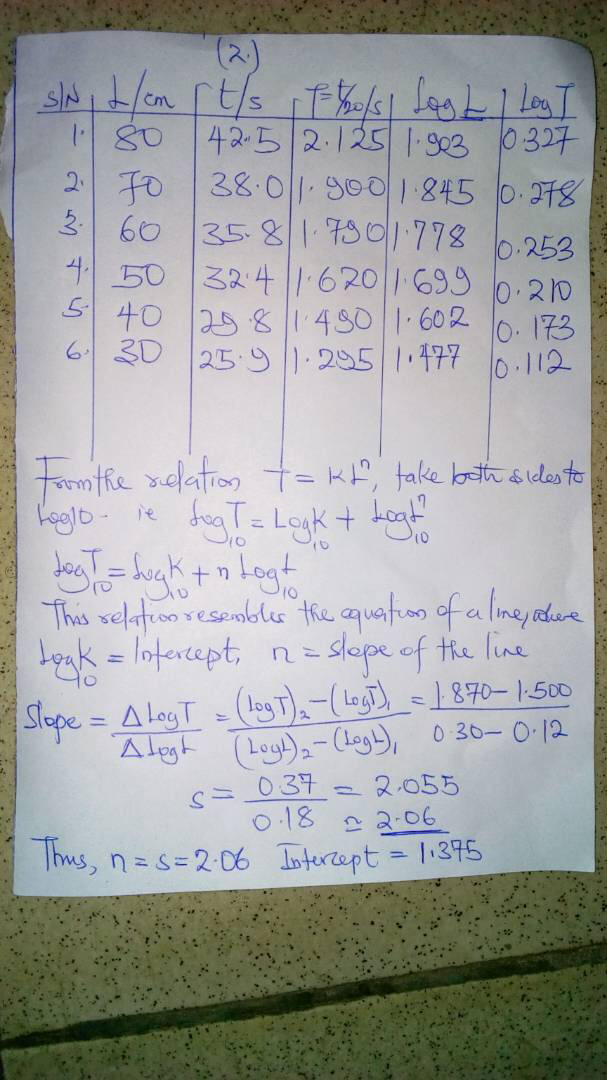 (2.)
S/N L/cm t/s T=t/20/s Log L Log T
1. 80 42.5 2.125 1.903 0.327
2. 70 38.0 1.900 1.845 0.278
3. 60 35.8 1.790 1.778 0.253
4. 50 32.4 1.620 1.699 0.210
5. 40 29.8 1.490 1.602 0.173
6. 30 25.9 1.295 1.477 0.112
From the relation T = KLⁿ, take both sides to
Log10 - ie Log₁₀T = Log₁₀K + Log₁₀Lⁿ
Log₁₀T = Log₁₀K + n Log₁₀L
This relation resembles the equation of a line, where
Log₁₀K = Intercept, n = slope of the line
Slope = ΔLogT/ΔLogL = (LogT)₂-(LogT)₁/(LogL)₂-(LogL)₁ = 1.870-1.500/0.30-0.12
s = 0.37/0.18 = 2.055
≃ 2.06
Thus, n = s = 2.06 Intercept = 1.375